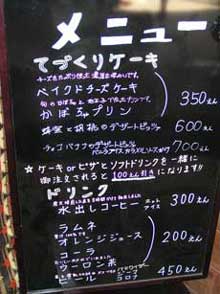 メニュー
てづくりケーキ
ベイクドチーズケーキ
かぼちゃプリン 350えん
蜂蜜と胡桃のデザートピッツァ 600えん
チョコバナナのデザートピッツァ 700えん
☆ケーキorピザとソフトドリンクを一緒に
御注文されると100えん引きになります!!
ドリンク
水出しコーヒー ホット アイス 300えん
ラムネ
オレンジジュース 200えん
コーラ
ウーロン茶
ビール バドワイザー コロナ 450えん